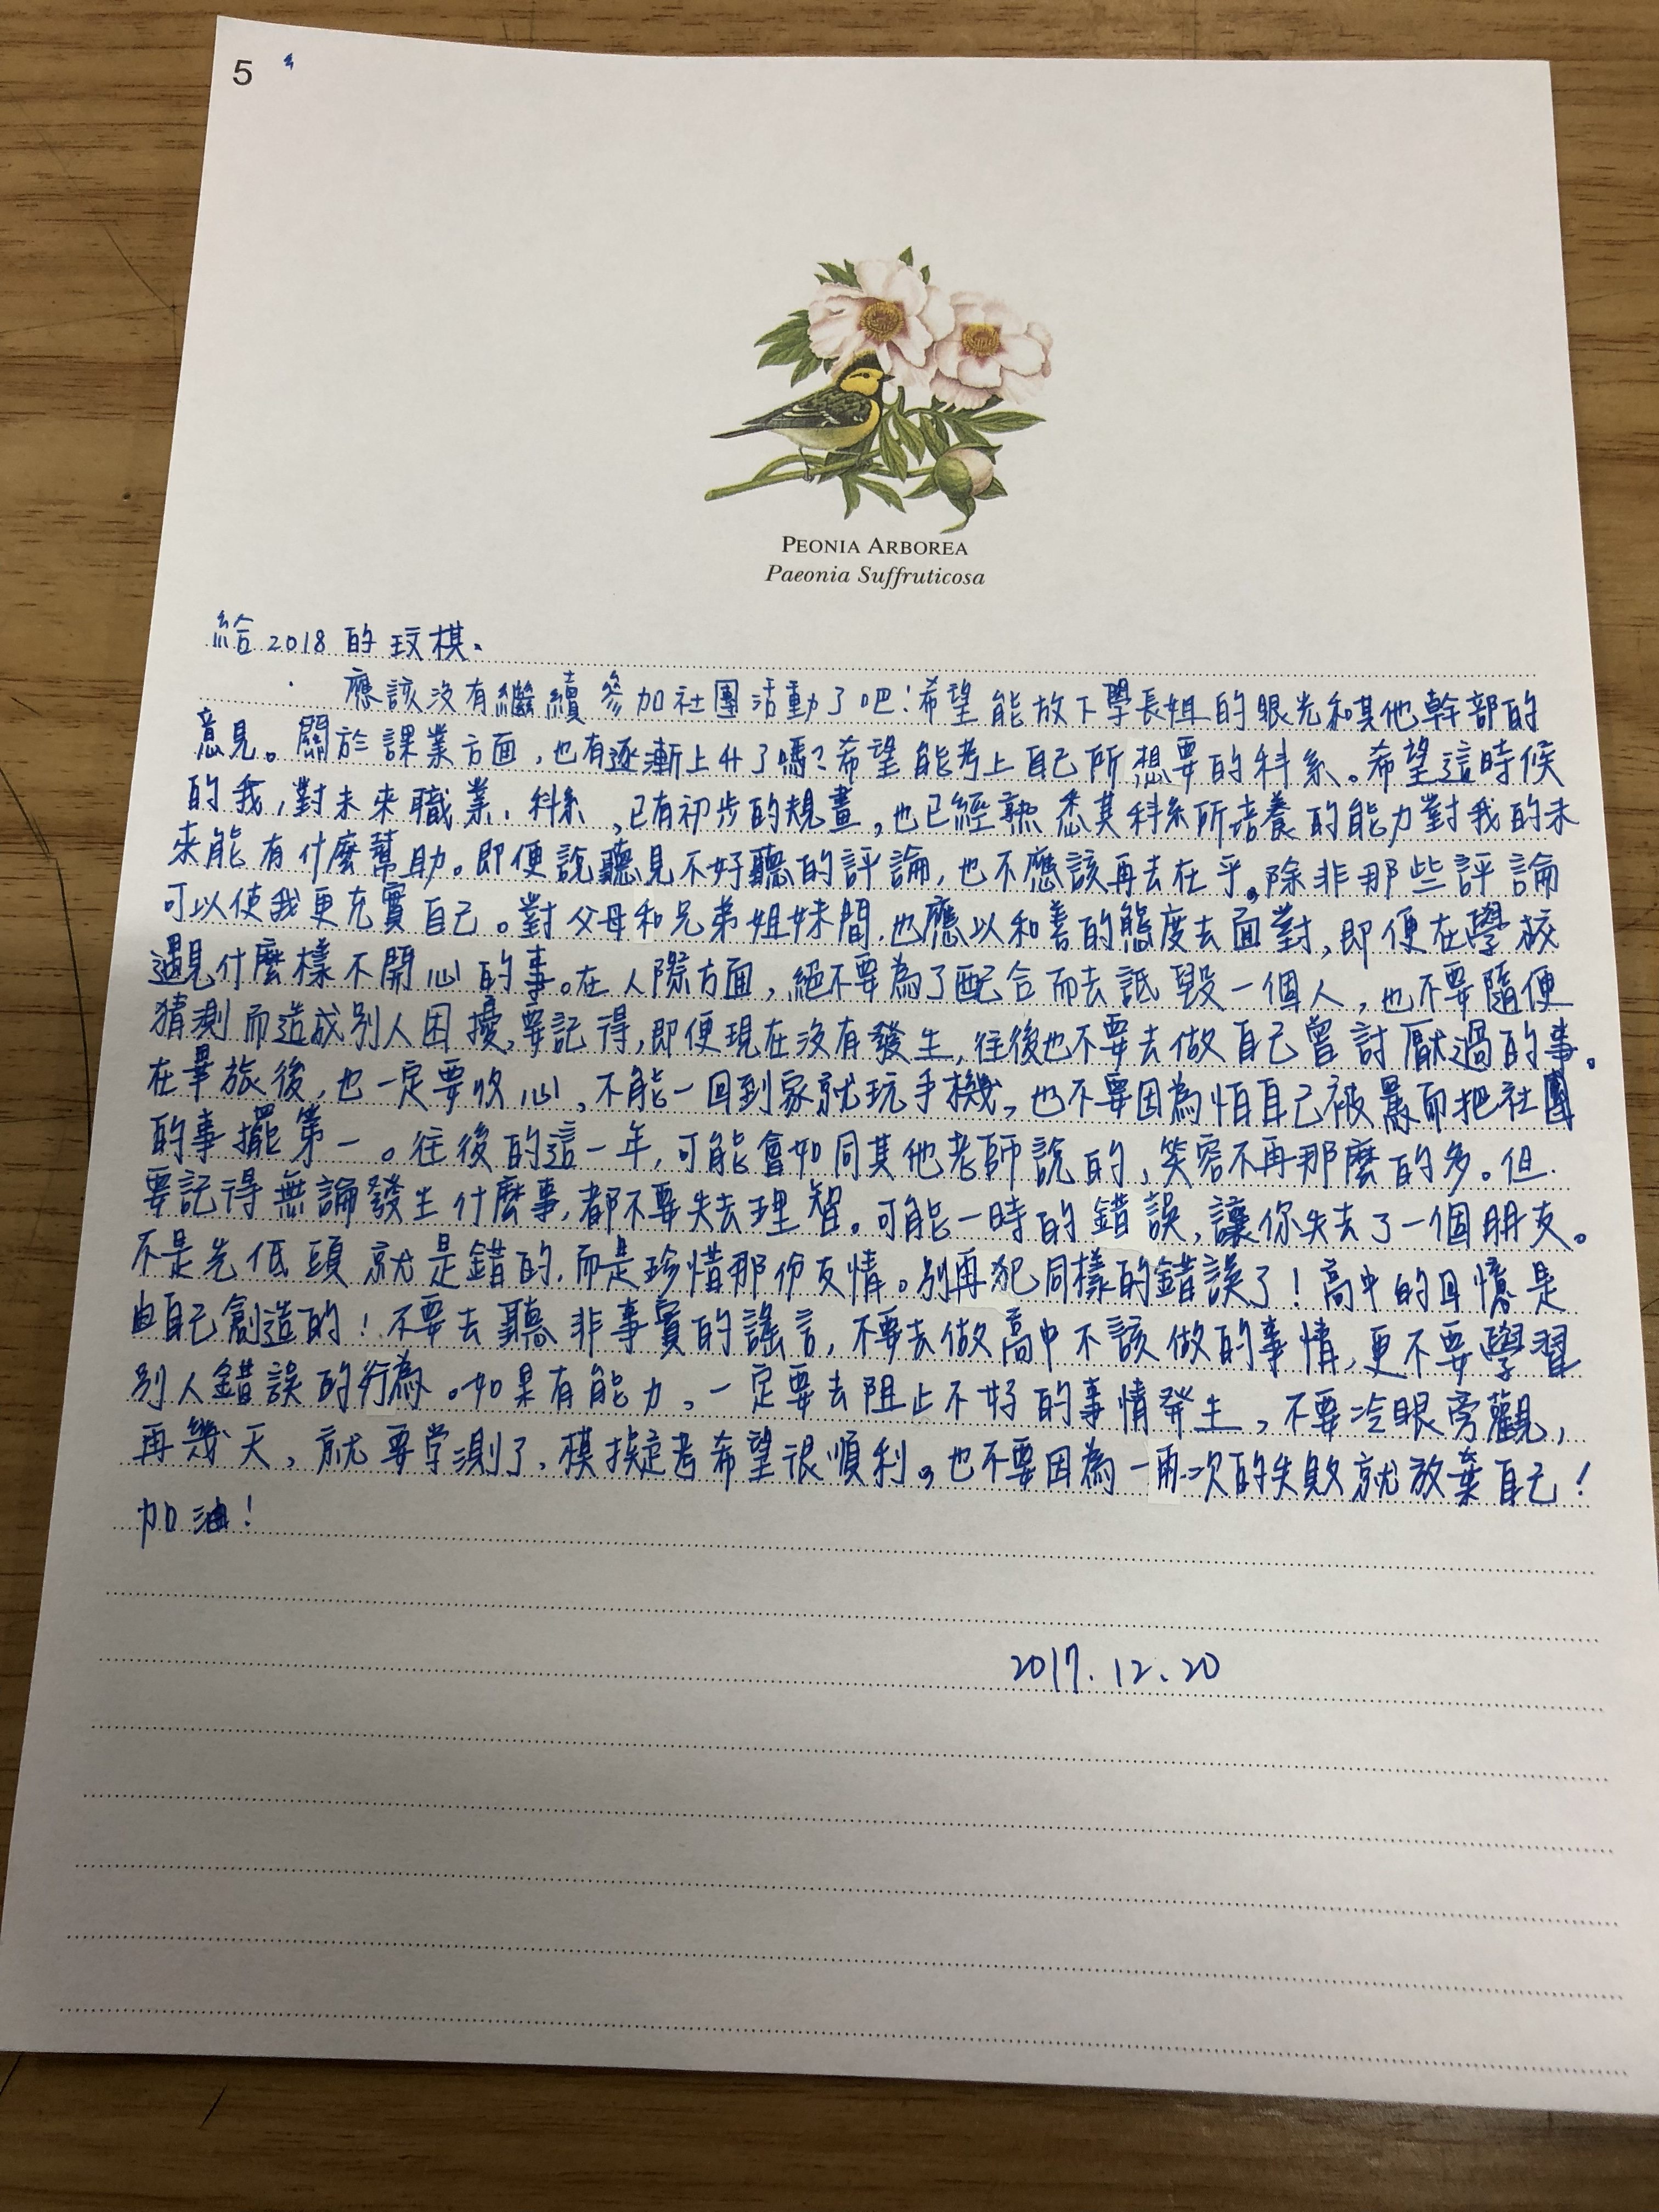 5
PEONIA ARBOREA
Paeonia Suffruticosa
給2018的玟棋、
應該沒有繼續參加社團活動了吧!希望能放下學長姐的眼光和其他幹部的
意見。關於課業方面,也有逐漸上升了嗎?希望能考上自己所想要的科系。希望這時候
的我,對未來職業、科系,已有初步的規畫,也已經熟悉其科系所培養的能力對我的未
來能有什麼幫助。即便說聽見不好聽的評論,也不應該再去在乎,除非那些評論
可以使我更充實自己。對父母和兄弟姐妹間,也應以和善的態度去面對,即便在學校
遇見什麼樣不開心的事。在人際方面,絕不要為了配合而去詆毀一個人,也不要隨便
猜測而造成別人困擾,要記得,即便現在沒有發生,往後也不要去做自己曾討厭過的事。
在畢旅後,也一定要收心,不能一回到家就玩手機,也不要因為怕自己被罵而把社團
的事擺第一。往後的這一年,可能會如同其他老師說的,笑容不再那麼的多。但
要記得無論發生什麼事,都不要失去理智。可能一時的錯誤,讓你失去了一個朋友。
不是先低頭就是錯的,而是珍惜那份友情。別再犯同樣的錯誤了!高中的回憶是
由自己創造的!不要去聽非事實的謠言,不要去做高中不該做的事情,更不要學習
別人錯誤的行為。如果有能力,一定要去阻止不好的事情發生,不要冷眼旁觀,
再幾天,就要学測了,模擬考希望很順利,也不要因為一兩次的失敗就放棄自己!
加油!
2017.12.20